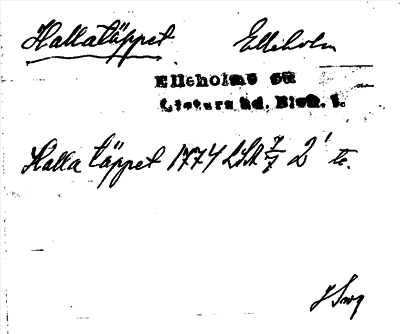 Hallatäppet Elleholm
Elleholms sn
Listers hd. Blek. l.
Halla täppet 1774 LSH 7/7 2' te.